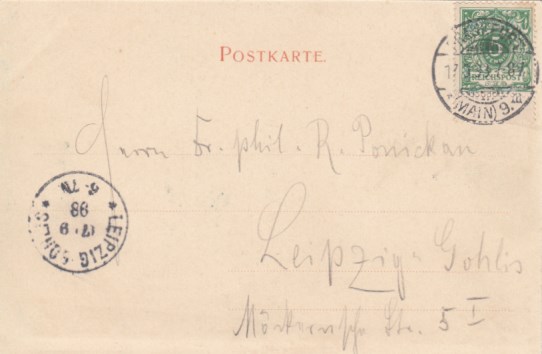 POSTKARTE.
5
REICHSPOST
(MAIN) 9.
Herrn Dr. phil. R. Ponickau
LEIPZIG-GOHLIS
17 9
98
6-7N
Leipzig-Gohlis
Möckernsche Str. 5 I